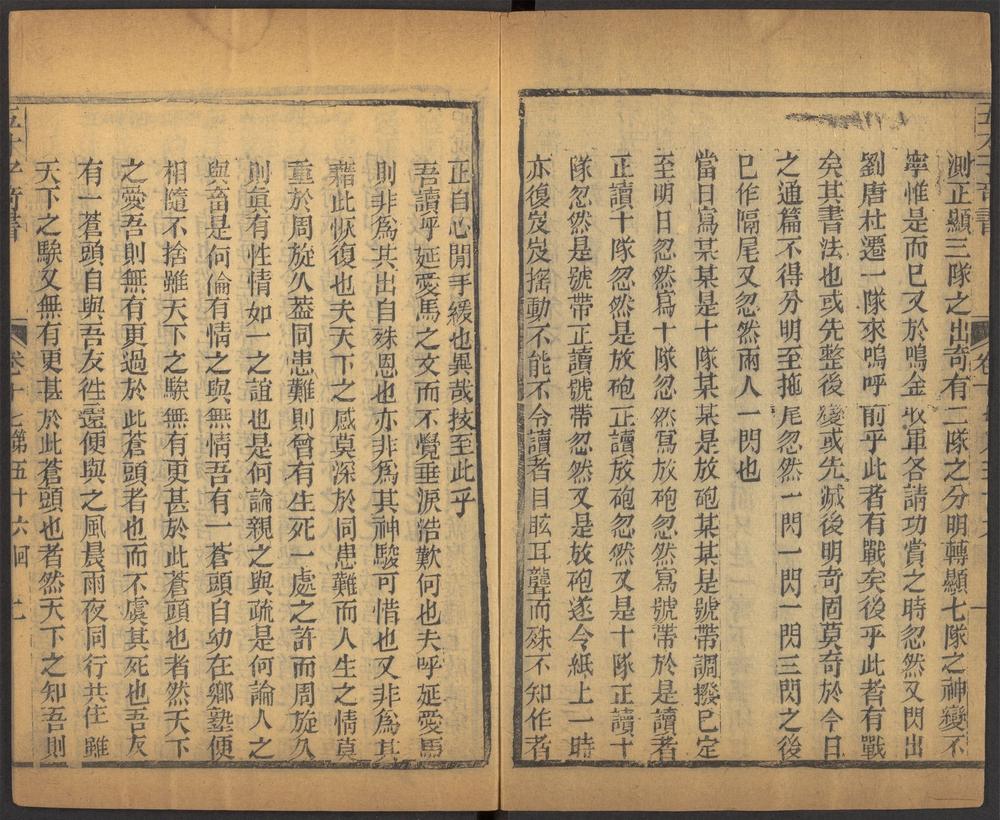 測正顯三隊之出奇有二隊之分明轉顯七隊之神變不
寧惟是而已又於鳴金收軍各請功賞之時忽然又閃出
劉唐杜遷一隊來嗚呼前乎此者有戰矣後乎此者有戰
矣其書法也或先整後變或先滅後明奇固莫奇於今日
之通篇不得分明至拖尾忽然一閃一閃一閃三閃之後
已作隔尾又忽然兩人一閃也
當日寫某某是十隊某某是放砲某某是號帶調撥已定
至明日忽然寫十隊忽然寫放砲忽然寫號帶於是讀者
正讀十隊忽然是放砲正讀放砲忽然又是十隊正讀十
隊忽然是號帶正讀號帶忽然又是放砲遂令紙上一時
亦復岌岌搖動不能不令讀者目眩耳聾而殊不知作者
正自心閒手緩也異哉技至此乎
吾讀呼延愛馬之文而不覺垂淚浩歎何也夫呼延愛馬
則非爲其出自殊恩也亦非爲其神駿可惜也又非爲其
藉此恢復也夫天下之感莫深於同患難而人生之情莫
重於周旋久葢同患難則曾有生死一處之許而周旋久
則眞有性情如一之誼也是何論親之與疏是何論人之
與畜是何倫有情之與無情吾有一蒼頭自幼在鄉塾便
相隨不捨雖天下之騃無有更甚於此蒼頭也者然天下
之愛吾則無有更過於此蒼頭者也而不虞其死也吾友
有一蒼頭自與吾友徃還便與之風晨雨夜同行共住雖
天下之騃又無有更甚於此蒼頭也者然天下之知吾則
卷十七第五十六回